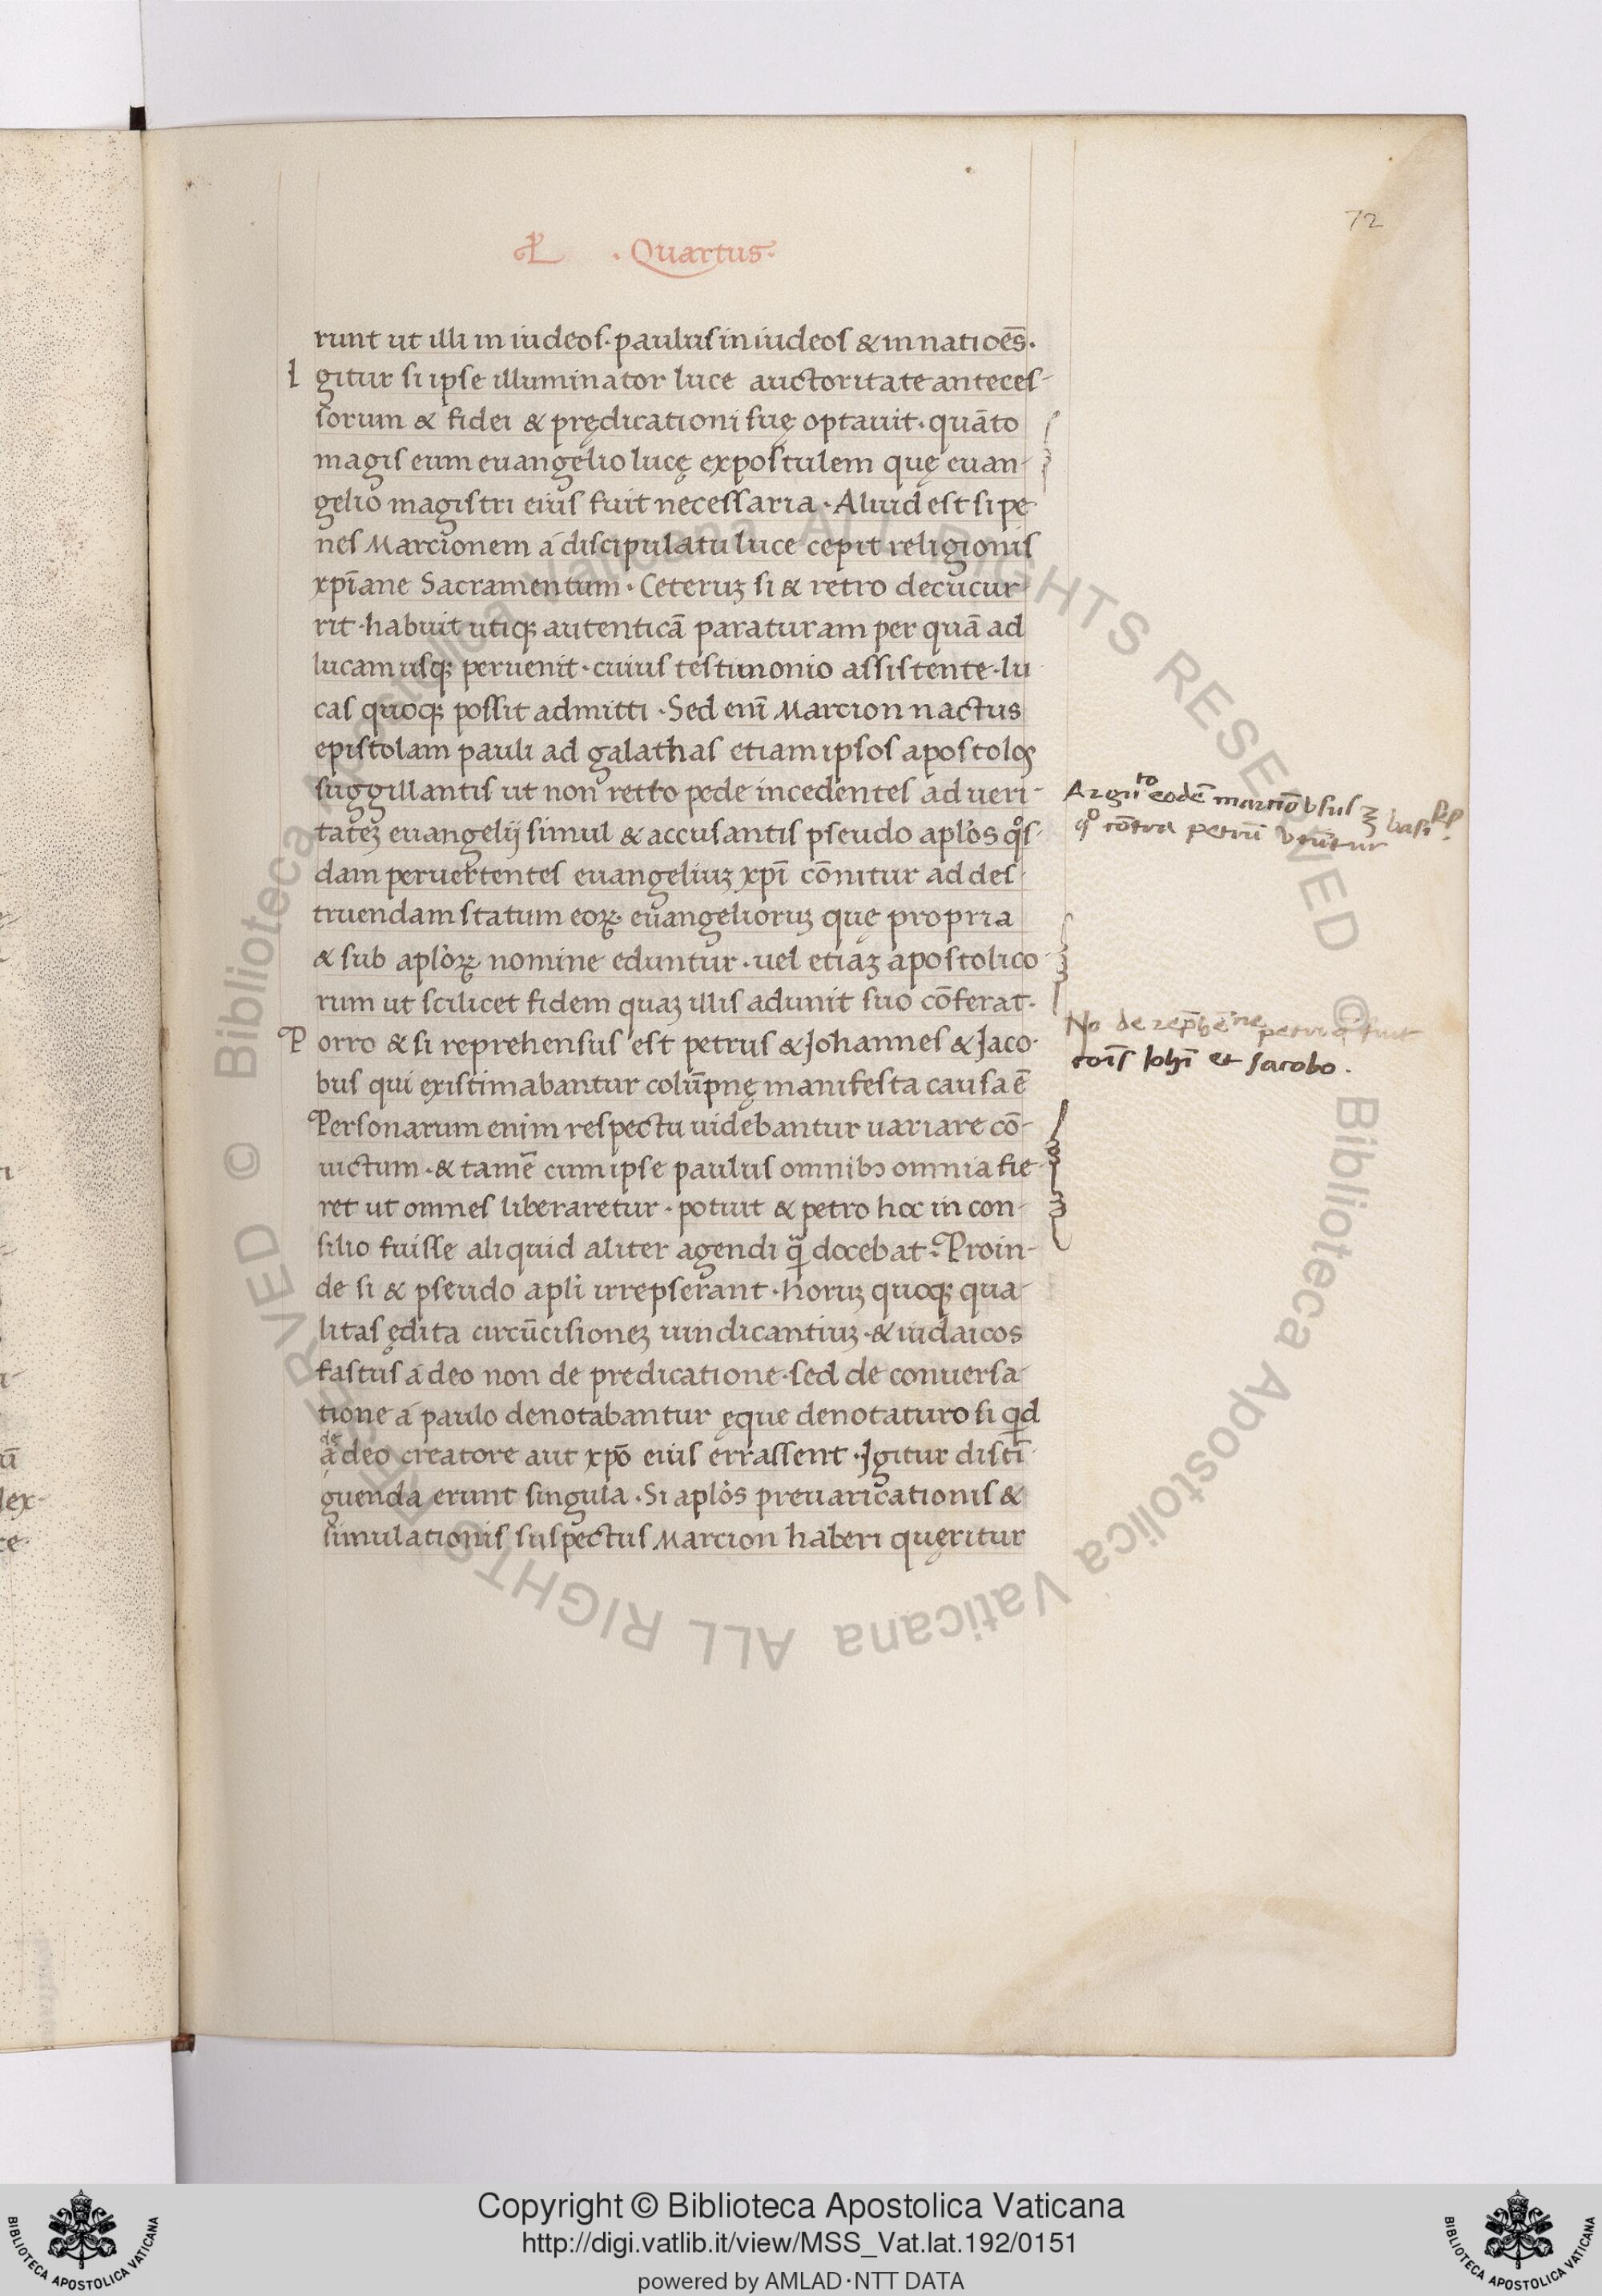 72
· Quartus ·
runt ut illi in iudeos· paulus in iudeos & in natiões̄·
I gitur si ipse illuminator luce auctoritate anteces-
sorum & fidei & prędicationi suę optauit · quāto
magis eum euangelio lucę expostulem quę euan-
gelio magistri eius fuit necessaria · Aliud est si pe-
nes Marcionem á discipulatu luce cepit religionis
xp̄iane Sacramentum · Ceteruꝫ si & retro decucur-
rit · habuit utiqꝫ autenticā paraturam per quā ad
lucam usqꝫ peruenit · cuius testimonio assistente · lu-
cas quoqꝫ possit admitti · Sed enī Marcion nactus
epistolam pauli ad galathas etiam ipsos apostolos
suggillantis ut non retto pede incedentes ad ueri-
tateꝫ euangelij simul & accusantis pseudo apl̄os qͦs-
dam peruertentes euangeliuꝫ xp̄i cōnitur ad des-
truendam statum eoꝝ euangelioruꝫ quę propria
& sub apl̄oꝝ nomine eduntur · uel etiaꝫ apostolico-
rum ut scilicet fidem quaꝫ illis adimit suo cōferat·
P orro & si reprehensus est petrus & Johannes & Jaco-
bus qui existimabantur colūpnę manifesta causa ē
Personarum enim respectu uidebantur uariare cō-
uictum · & tamē cum ipse paulus omnibꝫ omnia fie-
ret ut omnes liberaretur · potuit & petro hoc in con-
silio fuisse aliquid aliter agendi qͣ̄ docebat · Proin-
de si & pseudo apl̄i irrepserant · horuꝫ quoqꝫ qua-
litas ędita circūcisioneꝫ uindicantiuꝫ · & iudaicos
fastus á deo non de predicatione · sed de conuersa-
tione á paulo denotabantur ęque denotaturo si qd
de
á deo creatore aut xp̄o eius errassent · Igitur distī-
guenda erunt singula · Si apl̄os preuaricationis &
simulationis suspectus Marcion haberi quęritur
Argūto eodē
qͦ cōtra petrū utūtur
No de
cois̄ Iohi̅ et Jacobo .
Copyright © Biblioteca Apostolica Vaticana
http://digi.vatlib.it/view/MSS_Vat.lat.192/0151
powered by AMLAD·NTT DATA
BIBLIOTECA APOSTOLICA VATICANA
BIBLIOTECA APOSTOLICA VATICANA
© Biblioteca Apostolica Vaticana ALL RIGHTS RESERVED © Biblioteca Apostolica Vaticana ALL RIGHTS RESERVED